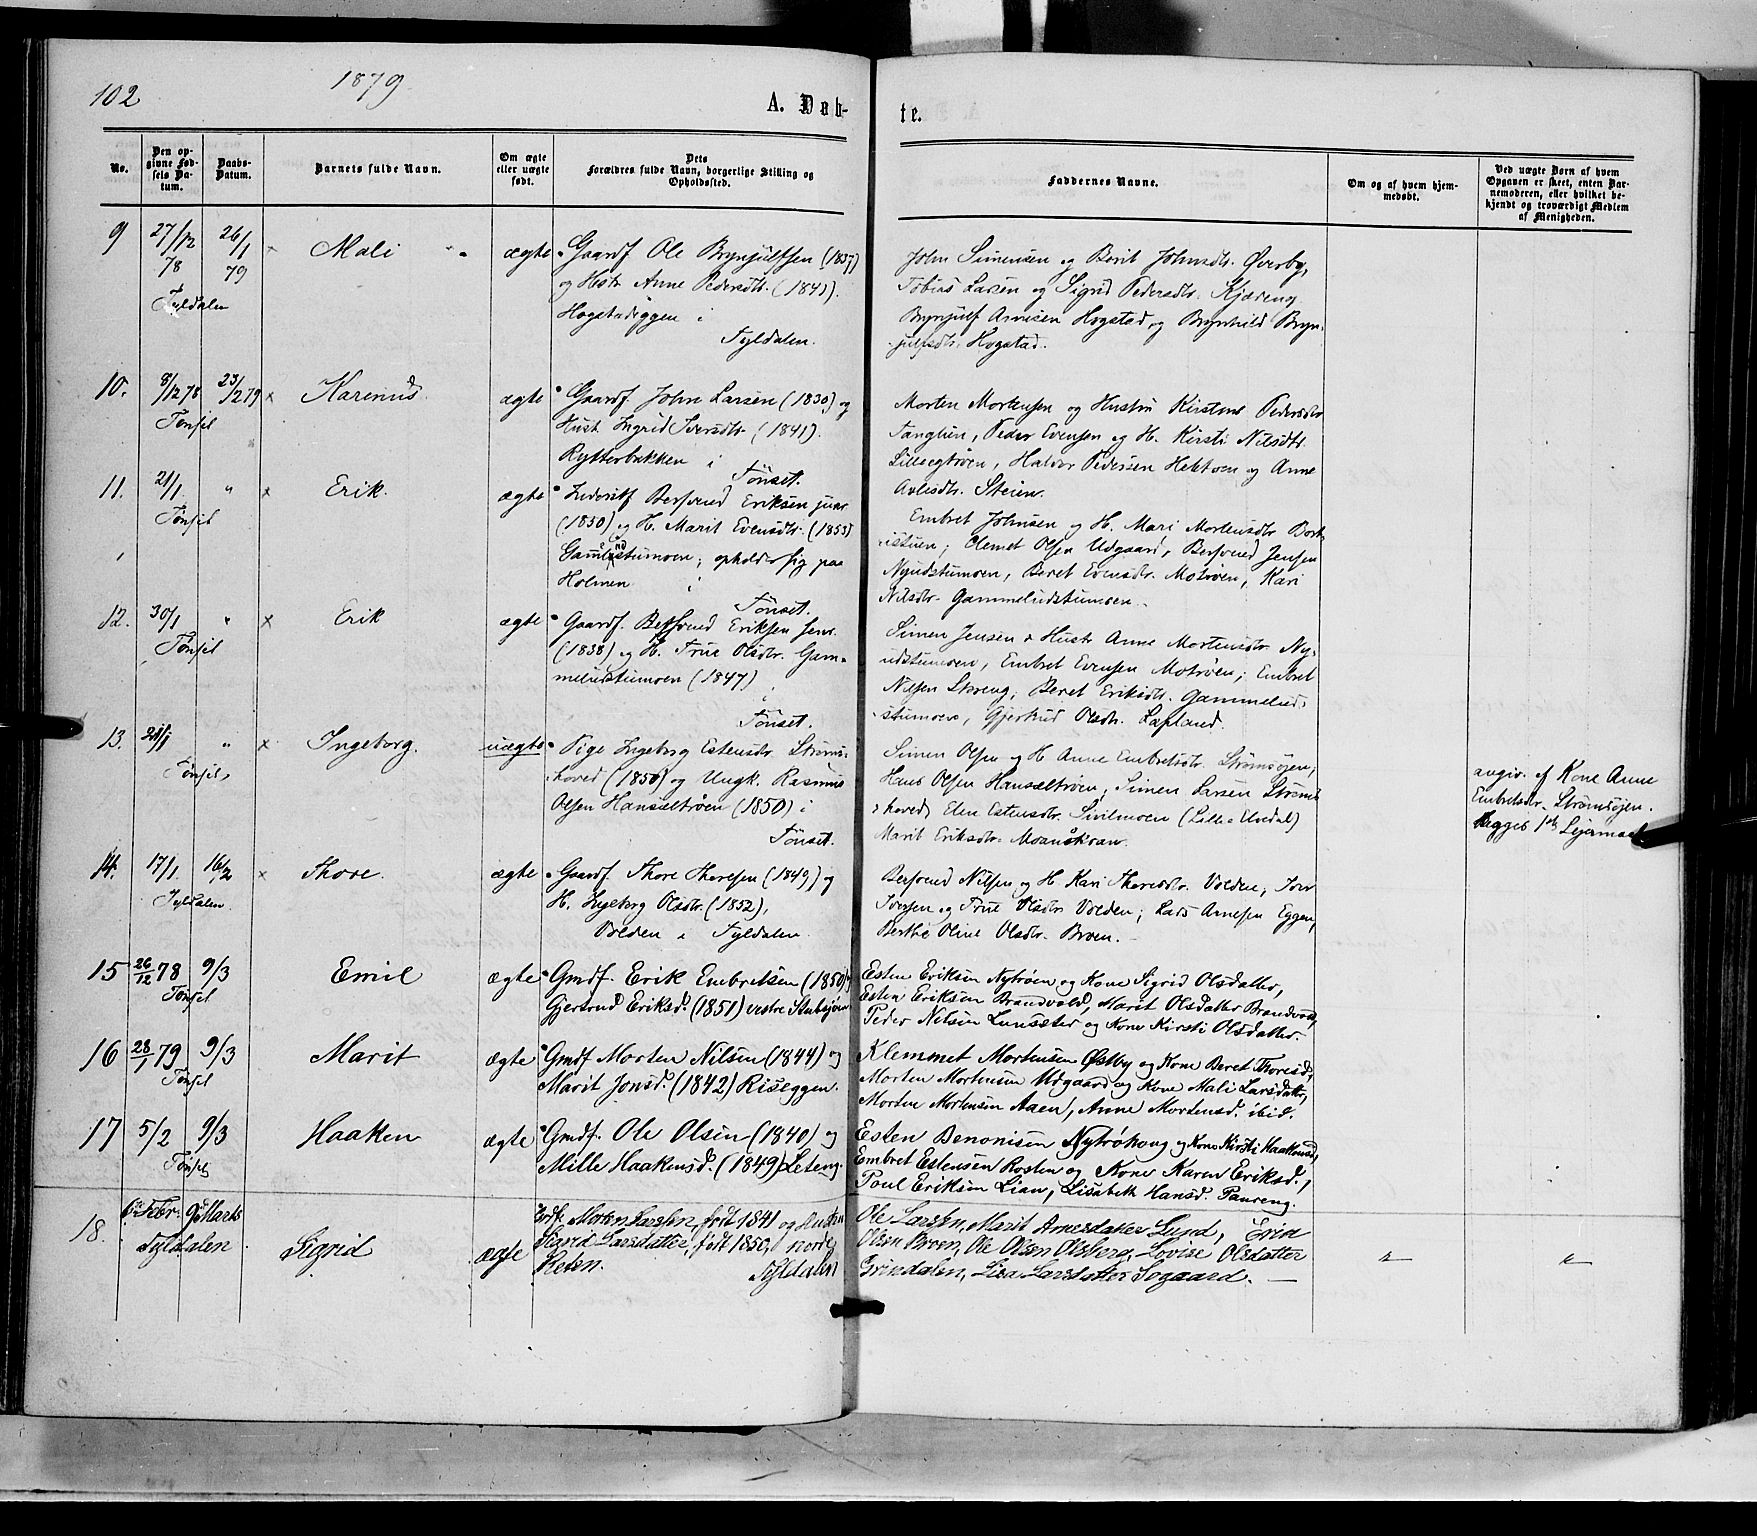 102
1879
A. Døb-
te.
No.
Den op-
givne Fød-
sels Da-
tum.
Daabs-
Datum.
Barnets fulde Navn.
Om ægte
eller uægte
født.
Dets
Forældres fulde Navn, borgerlige Stilling og
Opholdssted.
Faddernes Navne.
Om og af hvem hjem-
medøbt.
Ved uægte Børn af hvem
Opgaven er skeet, enten Bar-
nemoderen, eller hvilket be-
kjendt og troværdigt Medlem
af Menigheden.
9 27/12 78 26/1 79
Tyldalen
× Mali
ægte
Gaardf Ole Brynjulfsen (1837)
og Hstr Anne Pedersdtr. (1841).
Hogstadeggen i
Tyldalen.
John Simensen og Berit Johnsdtr. Øverby,
Tobias Larsen og Sigrid Pedersdtr. Kjæreng
Brynjulf Arnesen Hogstad, og Brynhild Bryn-
julfsdtr. Hogstad.
10. 8/12 78 23/2 79
Tønset
× Karenus
ægte
Gaardf. John Larsen (1830) og
Hust. Ingrid Iversdtr. (1841).
Rytterbakken i
Tönset.
Morten Mortensen og Hustru Kirstine Pedersdtr
Tanglien, Peder Evensen og H. Kirsti Nilsdtr.
Lillesegtrøen, Haldor Pedersen Hektoen og Anne
Avlesdtr. Steien.
11. 21/1 "
Tønset
× Erik.
ægte
Inderstf Bersvend Eriksen junr
(1850) og H. Marit Evensdtr. (1853)
Gamlestumoen; opholder sig paa
Holmen i
Tönset.
Embret Johnsen og H. Mari Mortensdtr Bort-
istuen; Clemet Olsen Udgaard, Bersvend Jensen
Nyudstumoen, Beret Evensdtr. Motrøen, Kari
Nilsdtr. Gammeludstumoen.
12. 30/1 "
Tønset
× Erik
ægte
Gaardf. Bersvend Eriksen senr.
(1838) og H. Frue Olsdtr. Gam-
meludstumoen (1847)
i
Tönset.
Simen Jensen & Hustr Anne Mortensdtr Ny-
udstumoen, Embret Evensen Motrøen; Embret
Nilsen Skreng; Beret Eriksdtr. Gammelud-
stumoen, Gjertrud Olsdtr. Lapland.
13. "
Tønset
× Ingeborg.
uægte
Pige Ingeborg Estensdtr. Strøms-
hoved (1856) og Ungk. Rasmus
Olsen Hansæltrøen (1850) i
Tönset.
Simen Olsen og H Anne Embretsdtr. Strømsøjen;
Hans Olsen Hansæltrøen, Simen Larsen Strøms-
hoved, Elen Estensdtr. Sivilmoen (Lille Elvedal)
Marit Eriksdtr.
angiv. af Kone Anne
Embretsdtr. Strømsøjen.
Begges 1ste Lejermaal
14. 17/1. 16/2
Tyldalen.
× Thore.
ægte
Gaardf Thore Thoresen (1849) og
H. Ingeborg Olsdtr. (1852),
Volden i Tyldalen
Bersvend Nilsen og H Kari Thoresdtr. Volden, Iver
Iversen og Frue Olsdtr Volden; Lars Arnesen Eggen,
Berthe Oline Olsdtr. Broen.
15 26/12 78 9/3
Tønset
Emil
ægte
Gmdf. Erik Embretsen (1850)
Gjertrud Eriksd. (1851) vestre Stubsjøen
Esten Eriksen Nytrøen og Kone Sigrid Olsdatter,
Esten Eriksen Brandvold, Marit Olsdatter Brandvold,
Peder Nilsen Lunsæter og Kone Kirsti Olsdatter.
16 28/1 79 9/3
Tønset
Marit
ægte
Gmdf Morten Nilsen (1844) og
Marit Jonsd. (1842) Riseggen.
Klemmet Mortensen Østby og Kone Beret Thoresd,
Morten Mortensen Udgaard og Kone Mali Larsdatter,
Morten Mortensen Aaen, Anne Mortensd. ibid.
17 5/2 9/3
Tønset
Haaken
ægte
Gmdf. Ole Olsen (1840) og
Mille Haakensd. (1849) Leteng.
Esten Benonisen Nytrøhaug og Kone Kirsti Haakensd,
Embret Estensen Rosten og Kone Karen Eriksd.,
Poul Eriksen Lian, Lisabeth Hansd. Paureng.
18. 6te Febr. 9 Marts
Tyldalen
Sigrid
ægte
Morten Larsen, født 1841 og Hustru
Sigrid Larsdatter, født 1850, nordre
Tyldalen
Ole Larsen, Marit Arnesdatter Lund,
Olsen Broen, Ole Olsen Olsberg, Lovise Olsdatter
Grindalen, Lisa Larsdatter Sogaard. —
"
"